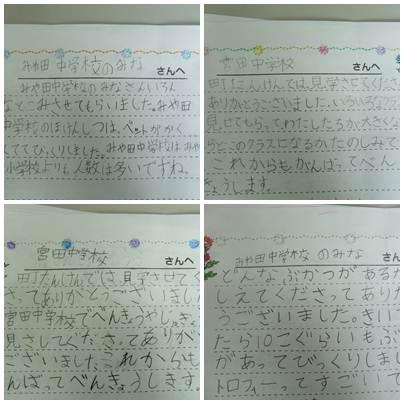 みや田中学校のみな
さんへ
みや田中学校のみなさんいろん
なとこみさせてもらいました。みや田
中学校のほけんしつは、ベットがかく
てびっくりしました。みや田中学校はみや
小学校よりも人数は多いですね。
宮田中学校
さんへ
町たんけんでは、見学させてくださ
ありがとうございました。いろいろなクラス
見せてもらって、わたしたちが大きくな
らどこのクラスになるかたのしみです
これからもがんばってべん
きょうします。
宮田中学校
さんへ
町たんけんでは、見学させてく
さってありがとうございまし
宮田中学校でべんきょうやしゃき
見さしてくださってありが
ございましたこれからも
んばってべんきょうします。
みや田中学校な のみな
さんへ
どんなぶかつがあるか
しえてくださってあり
うございました。きい
たら10こぐらいもぶ
があってびっくりしまし
トロフィーってすごいて